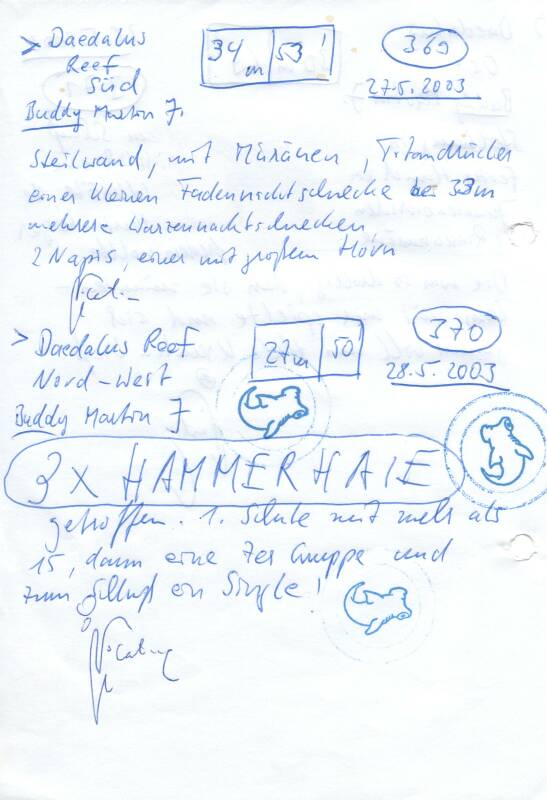 > Daedalus
Reef
Süd
34 m 53'
369
27.5.2003
Buddy Martin J.
Steilwand, mit Muränen, Titandrücker
einer kleinen Fadennacktschnecke bei 33m
mehrere Warzennacktschnecken,
2 Napis, einer mit großem Horn
> Daedalus Reef
Nord-West
27m 50'
370
28.5.2003
Buddy Martin J
3 X HAMMERHAIE
getroffen. 1. Schule mit mehr als
15, dann eine 7er Gruppe und
zum Schluß ein Single!